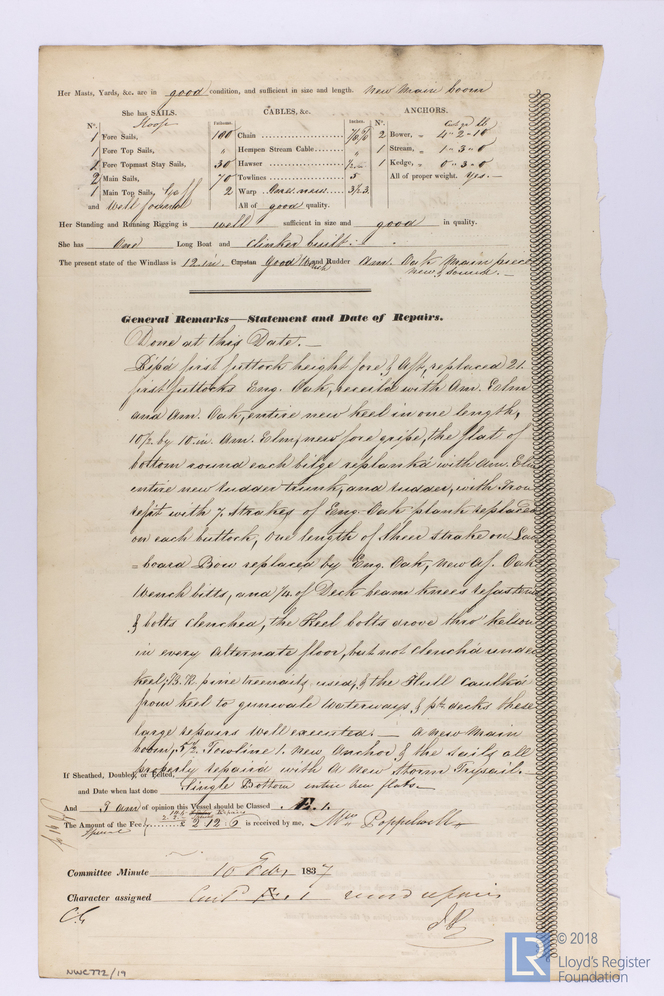 Her Masts, Yards, &c. are in good condition, and sufficient in size and length. New Main boom
She has SAILS.
CABLES, &c.
ANCHORS.
Nº.
Fathoms.
Inches.
Nº.
1 Fore Sails,
100 Chain
2 Bower, „ 4 „ 2 „ 10
1 Fore Top Sails,
„ Hempen Stream Cable
„
1 Stream, „ 1 „ 3 „ 0
2 Fore Topmast Stay Sails,
30 Hawser
1 Kedge, „ 0 „ 3 „ 0
2 Main Sails,
70 Towlines
5
All of proper weight. yes.
1 Main Top Sails, Gaff
2 Warp
and well found
All of good quality.
Her Standing and Running Rigging is well sufficient in size and good in quality.
She has One Long Boat and clinker built.
The present state of the Windlass is 12. in. Capstan good and Rudder Am. Oak Main piece
new & sound.
General Remarks—Statement and Date of Repairs.
Done at this Date.
Rip'd first futtock height fore & Aft, replaced 21
first futtocks Eng. Oak, with Am. Elm
and Am. Oak, entire new keel in one length,
10½ by 10. in. Am. Elm, new fore gripe, the flat of
bottom round each bilge replank'd with Am. Elm
entire new rudder trunk, and rudder, with Iron
refit with 7 Strakes of Eng. Oak plank replaced
on each buttock, One length of Sheer strake on Lar
=board Bow replaced by Eng. Oak, new Af. Oak
Wench bitts, and ¾ of Deck beam knees refastend
& bolts clenched, the Keel bolts drove thro' kelson
in every Alternate floor, but not clench'd under
keel, pine treenails used, & the Hull caulk'd
from keel to gunwale Waterways & pt. decks these
large repairs well executed. — A new Main
boom, 5½. Towline 1. New Anchor & the Sails all
properly repaired with A new storm Trysail.
If Sheathed, Doubled, or Felted,
and Date when last done Single Bottom entire new flats
And I am of opinion this Vessel should be Classed Æ. 1.
The Amount of the Fee £ 2 12 6 is received by me, Wm Poppelwell
Special
Committee Minute 10 Feby 1837
Character assigned Cont Æ. 1 record repairs
NWC772/19
LR
© 2018
Lloyd's Register
Foundation